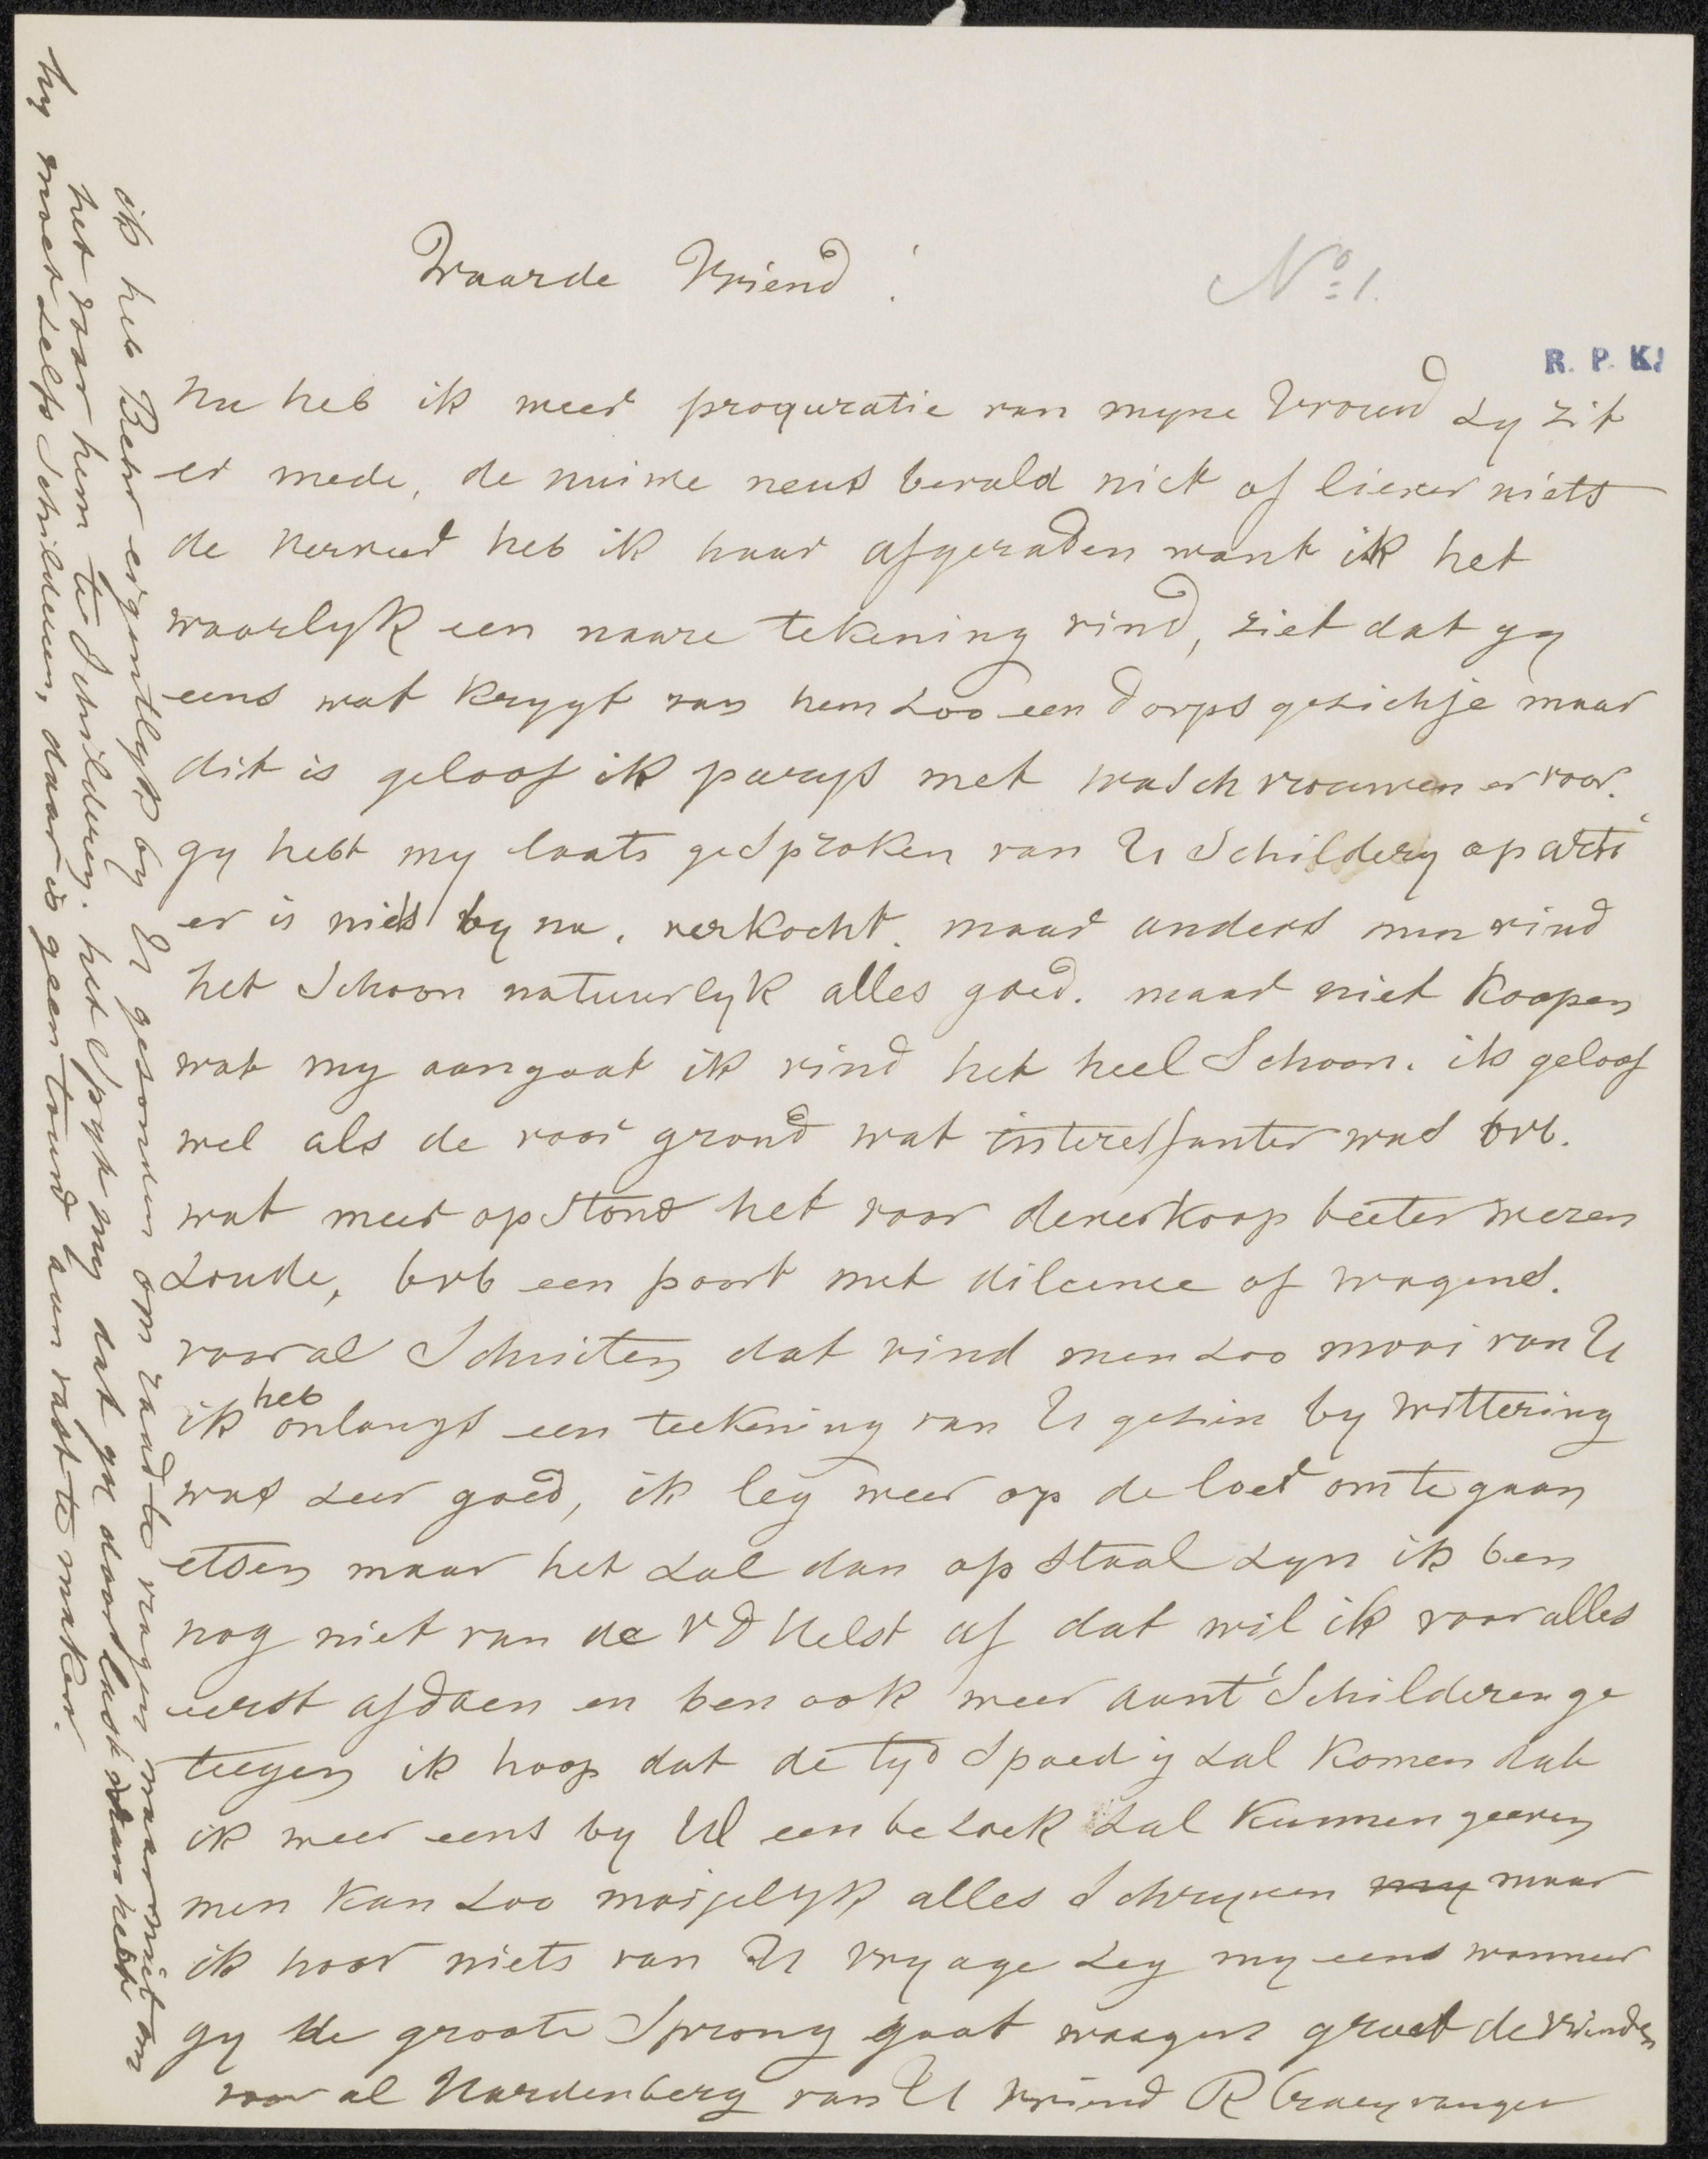 Waarde Vriend!
No 1.
R. P. K.
nu heb ik meer proquratie van myne Vrouw zy zit
er mede, de nuiwe neus bevald niet of liever niets
de Verveer heb ik haar afgeraden want ik het
waarlyk een naare tekening vind, ziet dat gy
eens wat krygt van hem zoo een dorps gezichje maar
dit is geloof ik parys met wasch vrouwen er voor.
gy hebt my laats gesproken van U Schildery op arti
er is niets by na, verkocht. maar anders men vind
het Schoon natuurlyk alles goed. maar niet koopen
wat my aangaat ik vind het heel Schoon. ik geloof
wel als de voor grond wat interessanter was bvb.
wat meer op Stond het voor de verkoop beeter wezen
zoude, bvb een poort met dilcence of wagens.
vooral Schuiten dat vind men zoo mooi van U
ik heb onlangs een teekening van U gezien by Wittering
was zeer goed, ik leg weer op de loer om te gaan
etsen maar het zal dan op Staal zyn ik ben
nog niet van de v d Helst af dat wil ik voor alles
eerst afdoen en ben ook weer aant Schilderen ge
teegen ik hoop dat de tyd Spoedig zal komen dat
ik weer eens by Ul een bezoek zal kunnen geeven
men kan zoo moijelyk alles Schryven my maar
ik hoor niets van U vryage zeg my eens wanneer
gy de groote Sprong gaat waagen groet de vrienden
voor al Hardenberg van U vriend R Craeyvanger
ik heb Behr eigentlyk by U gezonden om raad te vragen maar niet om
het voor hem te Schilderey. het Spyt my dat gy daar last van hebt
hy moet zelfs Schilderen, daar is geen touw aan vast te maken.